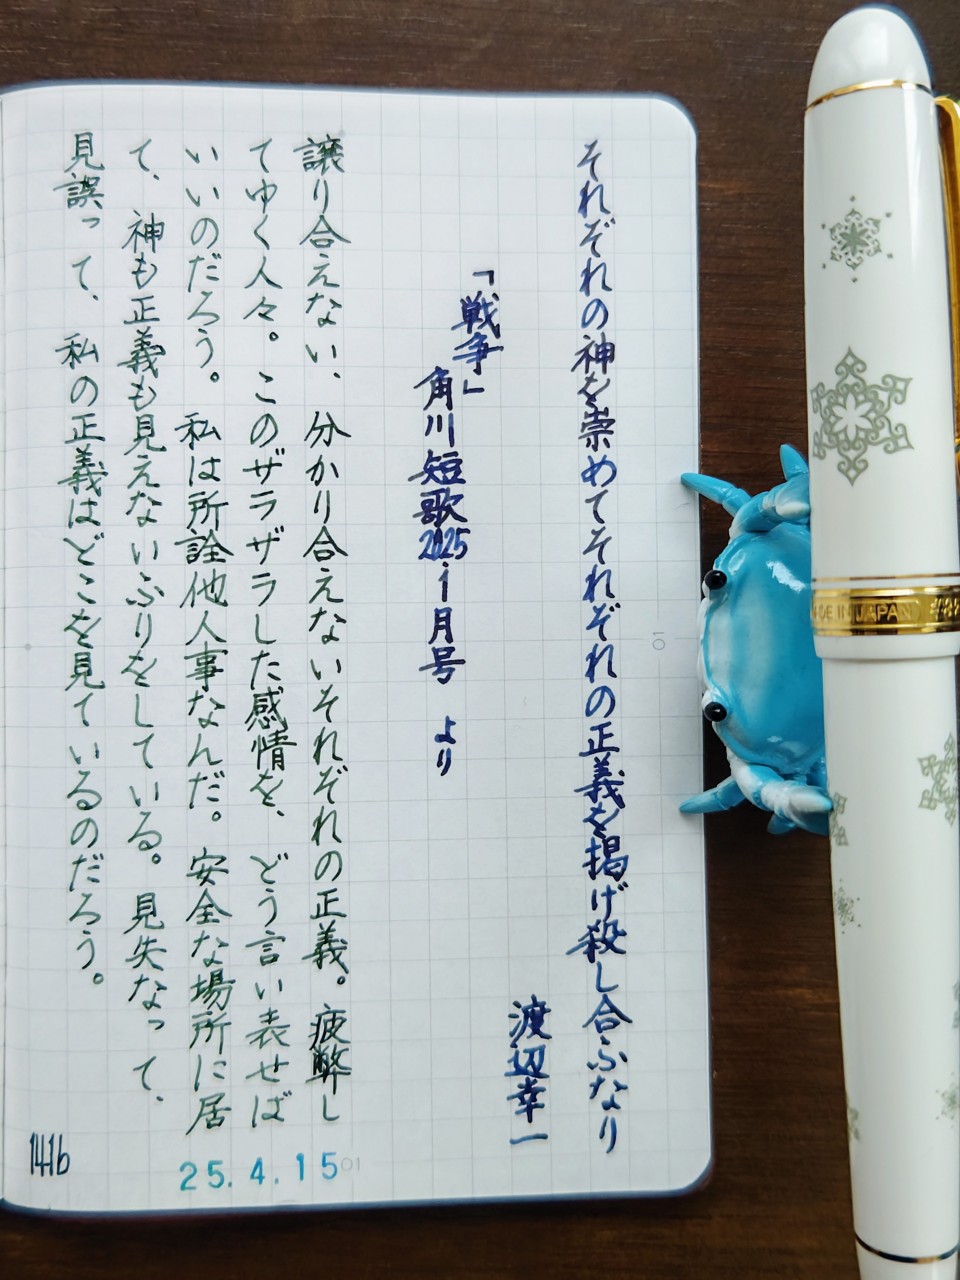 それぞれの神を崇めてそれぞれの正義を掲げ殺し合ふなり
渡辺幸一
「戦争」
角川短歌2025.1月号 より
譲り合えない、分かり合えないそれぞれの正義。疲弊し
てゆく人々。このザラザラした感情を、どう言い表せば
いいのだろう。私は所詮他人事なんだ。安全な場所に居
て、神も正義も見えないふりをしている。見失なって、
見誤って、私の正義はどこを見ているのだろう。
25.4.15
01
10
MADE IN JAPAN